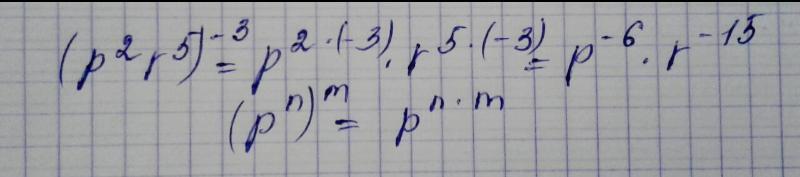 (p²r⁵)⁻³ = p^{2·(-3)} · r^{5·(-3)} = p⁻⁶ · r⁻¹⁵
(pⁿ)ᵐ = p^{n·m}